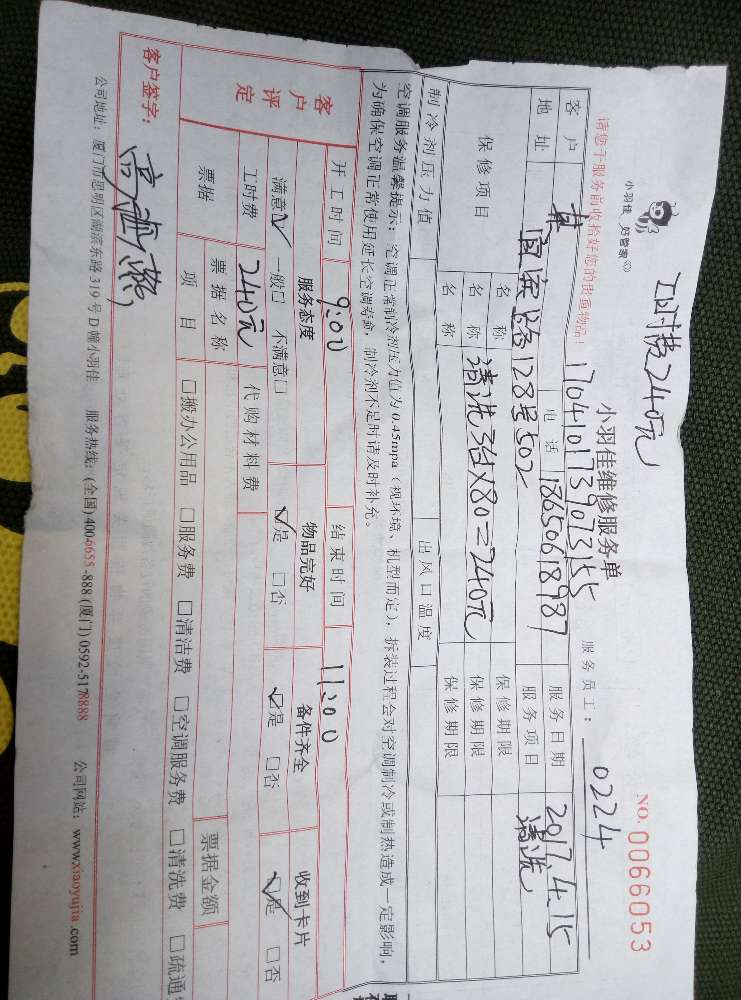 工时费240元
小羽佳 好管家
小羽佳维修服务单
NO. 0066053
请您于服务前收拾好您的贵重物品!
1704101739073155
服务员工: 0224
客户
电话 18650618987
服务日期 2017.4.15
地址
路128号502
服务项目 清洗
保修项目
名称
保修期限
名称 清洗3台X80=240元
保修期限
名称
保修期限
制冷剂压力值
出风口温度
空调服务温馨提示: 空调正常制冷剂压力值为0.45mpa (视环境、机型而定), 拆装过程会对空调制冷或制热造成一定影响,
为确保空调正常使用延长空调寿命, 制冷剂不足时请及时补充。
开工时间 9:00
结束时间 11:00
客户评定
服务态度
物品完好
备件齐全
收到卡片
满意☑ 一般□ 不满意□
☑是 □否
☑是 □否
☑是 □否
工时费 240元
代购材料费
票据
票据名称
票据金额
项目
□搬办公用品 □服务费 □清洁费 □空调服务费 □清洗费 □疏通
客户签字:
公司地址: 厦门市思明区湖滨东路319号D幢小羽佳 服务热线: (全国) 4004655-888 (厦门) 0592-5178888 公司网站: www.xiaoyujia.com